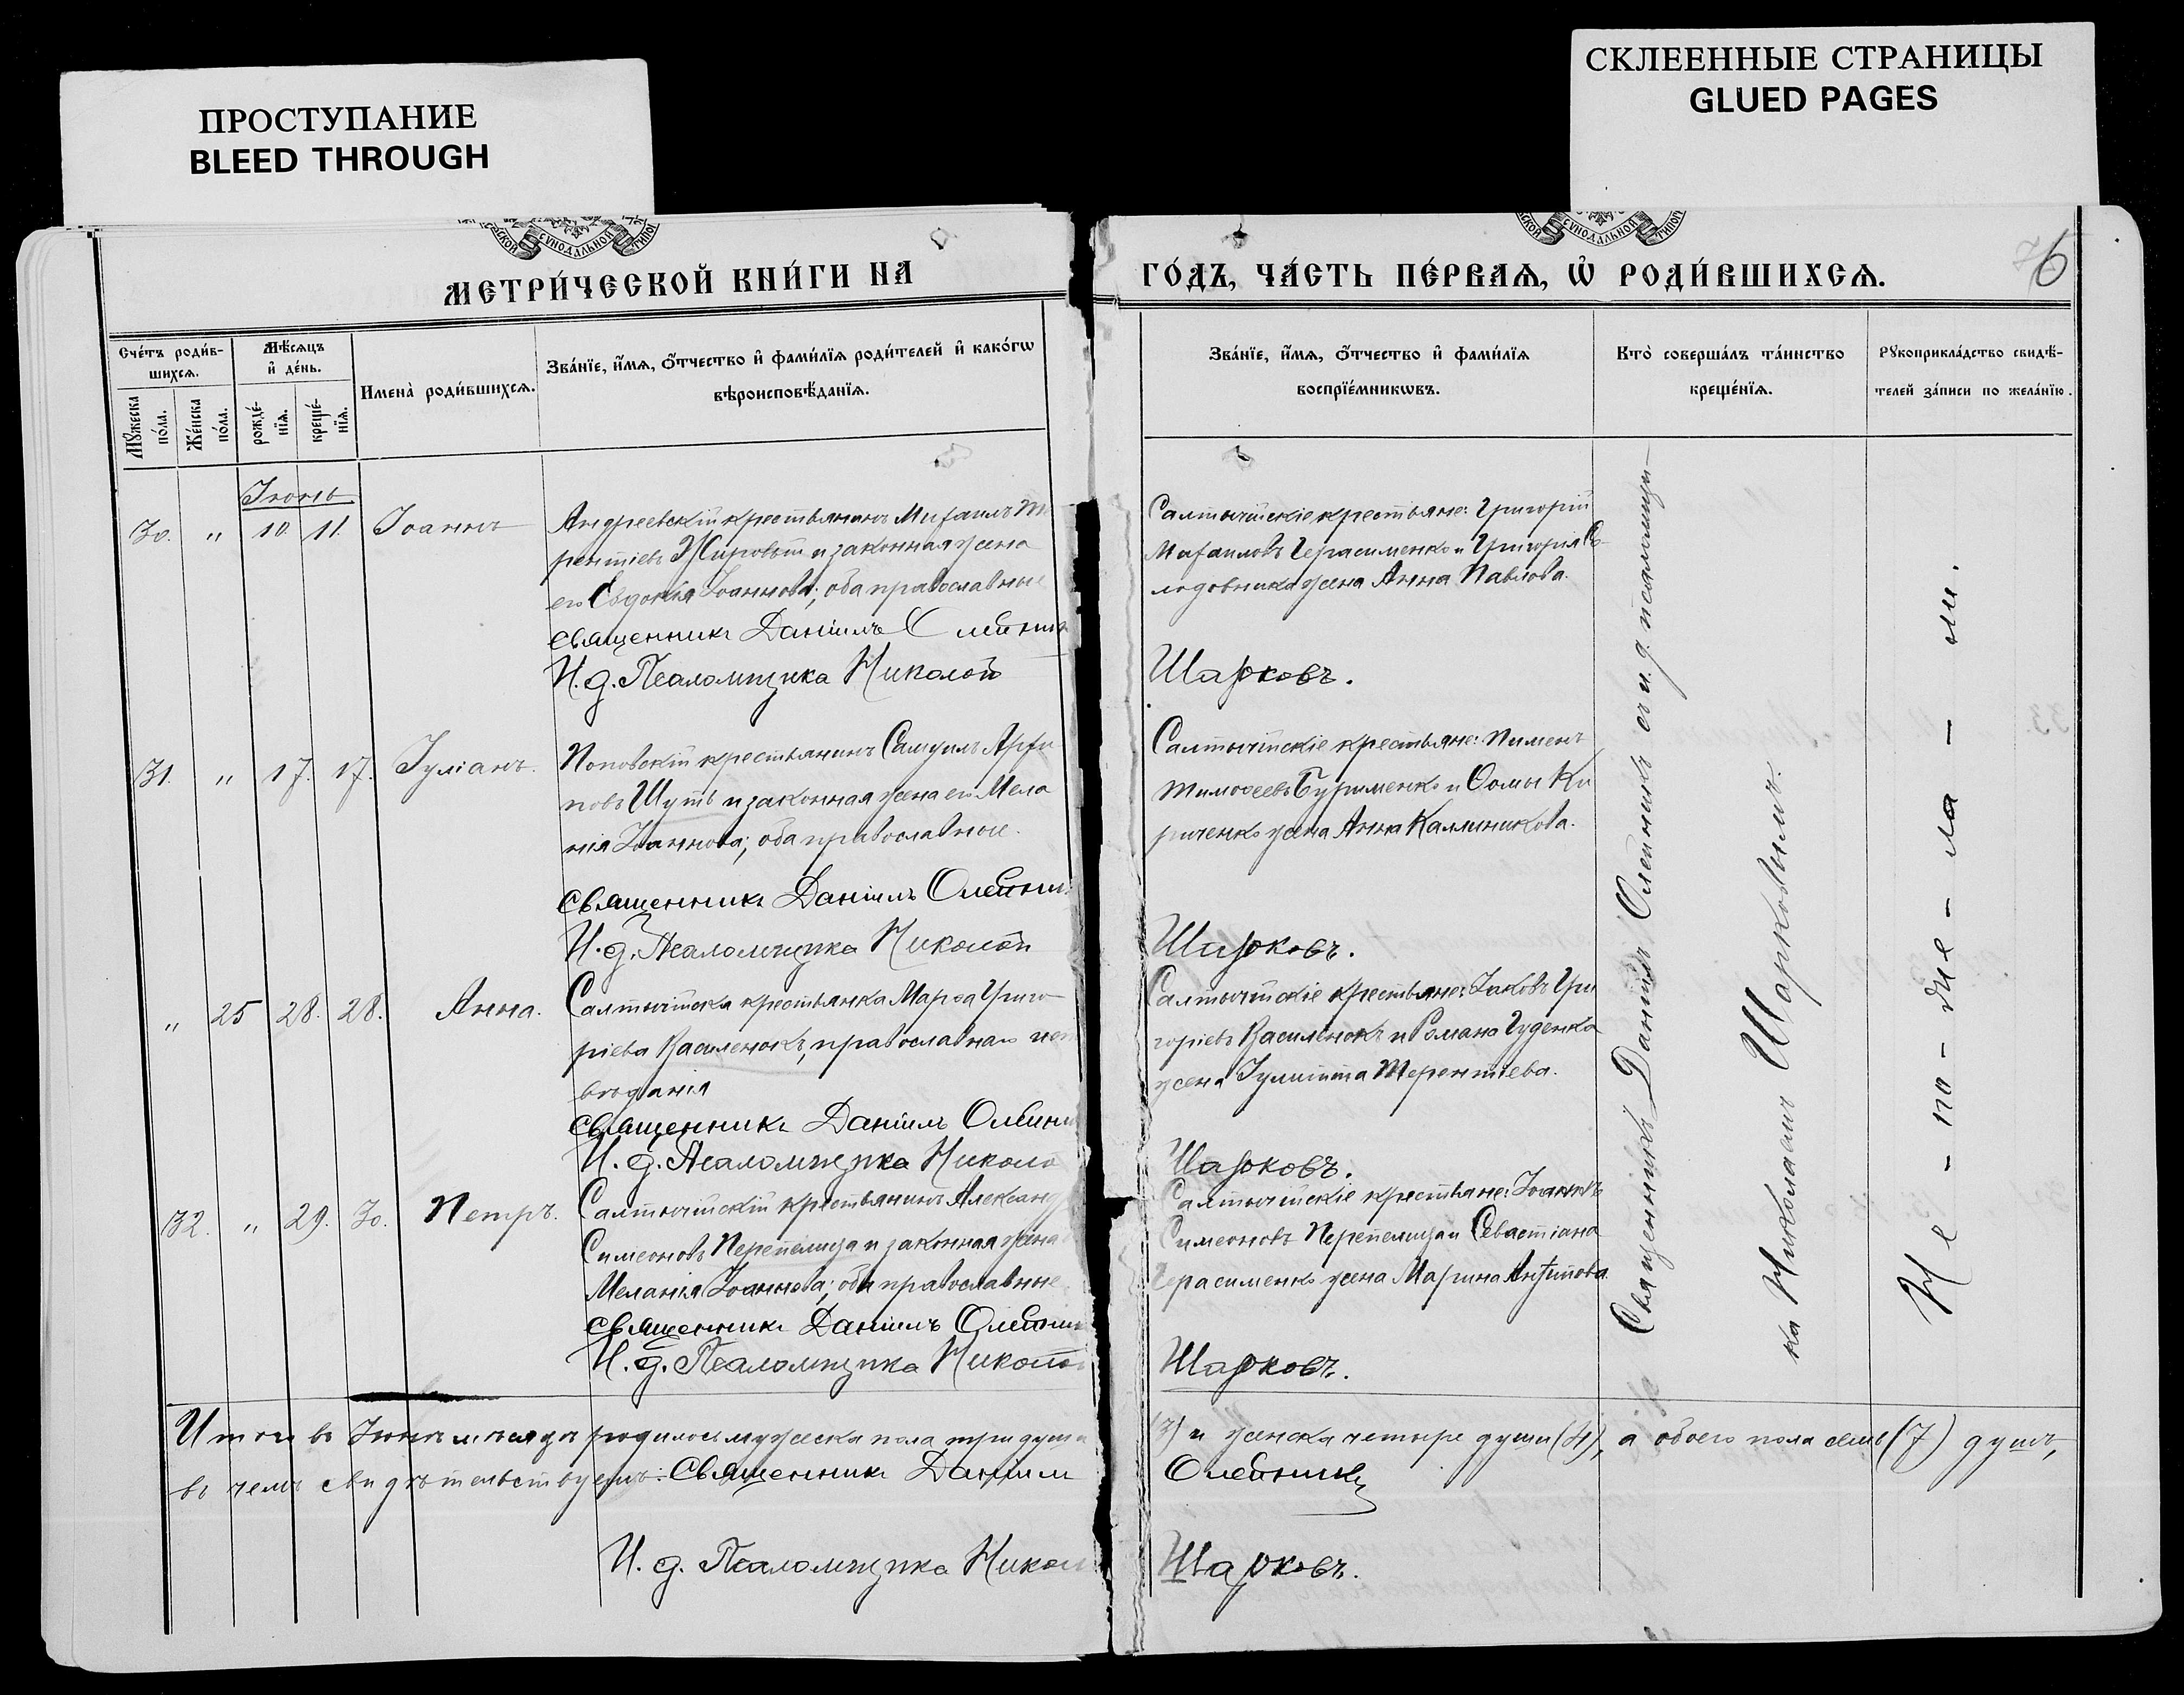 ПРОСТУПАНИЕ
BLEED THROUGH
СКЛЕЕННЫЕ СТРАНИЦЫ
GLUED PAGES
СѴНОДАЛЬНОЙ
СѴНОДАЛЬНОЙ
МЕТРИ́ЧЕСКОЙ КНИ́ГИ НА
ГО́ДЪ, ЧА́СТЬ ПЕ́РВАѦ, Ѡ҆ РОДИ́ВШИХСѦ.
6
Сче́тъ роди́в-
шихсѧ.
Мꙋ́жеска
по́ла.
Же́нска
по́ла.
Мѣ́сѧцъ
и҆ де́нь.
рожде́-
нїѧ.
креще́-
нїѧ.
Имена̀ роди́вшихсѧ.
Зва́нїе, и҆́мѧ, ѻ҆́тчество и҆ фами́лїѧ роди́телей и҆ како́гѡ
вѣроисповѣ́данїѧ.
Зва́нїе, и҆́мѧ, ѻ҆́тчество и҆ фами́лїѧ
воспрїе́мникѡвъ.
Кто̀ соверша́лъ та́инство
креще́нїѧ.
Рꙋкоприкла́дство свидѣ́-
телей за́писи по жела́нїю.
Іюнь
30. " 10. 11. Іоаннъ
Андреевскій крестьянинъ Михаилъ Те
рентіевъ Жировый и законная жена
его Евдокія Іоаннова; оба православные
Священникъ Даніилъ Олейник
И. д. Псаломщика Николай
Салтычійскіе крестьяне: Григорій
Михаиловъ Герасименко и Григорія
жена Анна Павлова.
Шарковъ.
31. " 17. 17. Іуліанъ.
Поповскій крестьянинъ Самуилъ
повъ Шуть и законная жена его Мела
нія Іоаннова; оба православные.
Священникъ Даніилъ Олейник
И. д. Псаломщика Николай
Салтычійскіе крестьяне: Пименъ
Тимоѳеевъ Буріменко и Ѳомы Ки
риченко жена Анна Каллиникова.
Шарковъ.
" 25 28. 28. Анна.
Салтычійска крестьянка Марѳа Григо
ріева Василенокъ, православнаго испо
вѣданія
Священникъ Даніилъ Олейник
И. д. Псаломщика Никола
Салтычійскіе крестьяне: Іаковъ Гри
горіевъ Василенокъ и Романа Гуденка
жена Іулитта Терентіева.
Шарковъ.
32. " 29. 30. Петръ.
Салтычійскій крестьянинъ Александ
Симеоновъ Перепелица и законная жена
Меланія Іоаннова; оба православные
Священникъ Даніилъ Олейник
И. д. Псаломщика Никола
Салтычійскіе крестьяне: Іоаннъ
Симеоновъ Перепелица и Севастіана
Герасименко жена Марина Антипова.
Шарковъ.
Священникъ Даніилъ Олейникъ съ и. д. псаломщи-
ка Николаемъ Шарковымъ.
Не - по - дис - ла - ли.
Итого въ Іюнѣ мѣсяцѣ родилось мужеска пола три души
(3) и женска четыре души (4), а обоего пола семь (7) душъ,
въ чемъ свидѣтельствуемъ: Священникъ Даніил
Олейникъ
И. д. Псаломщика Никол
Шарковъ.